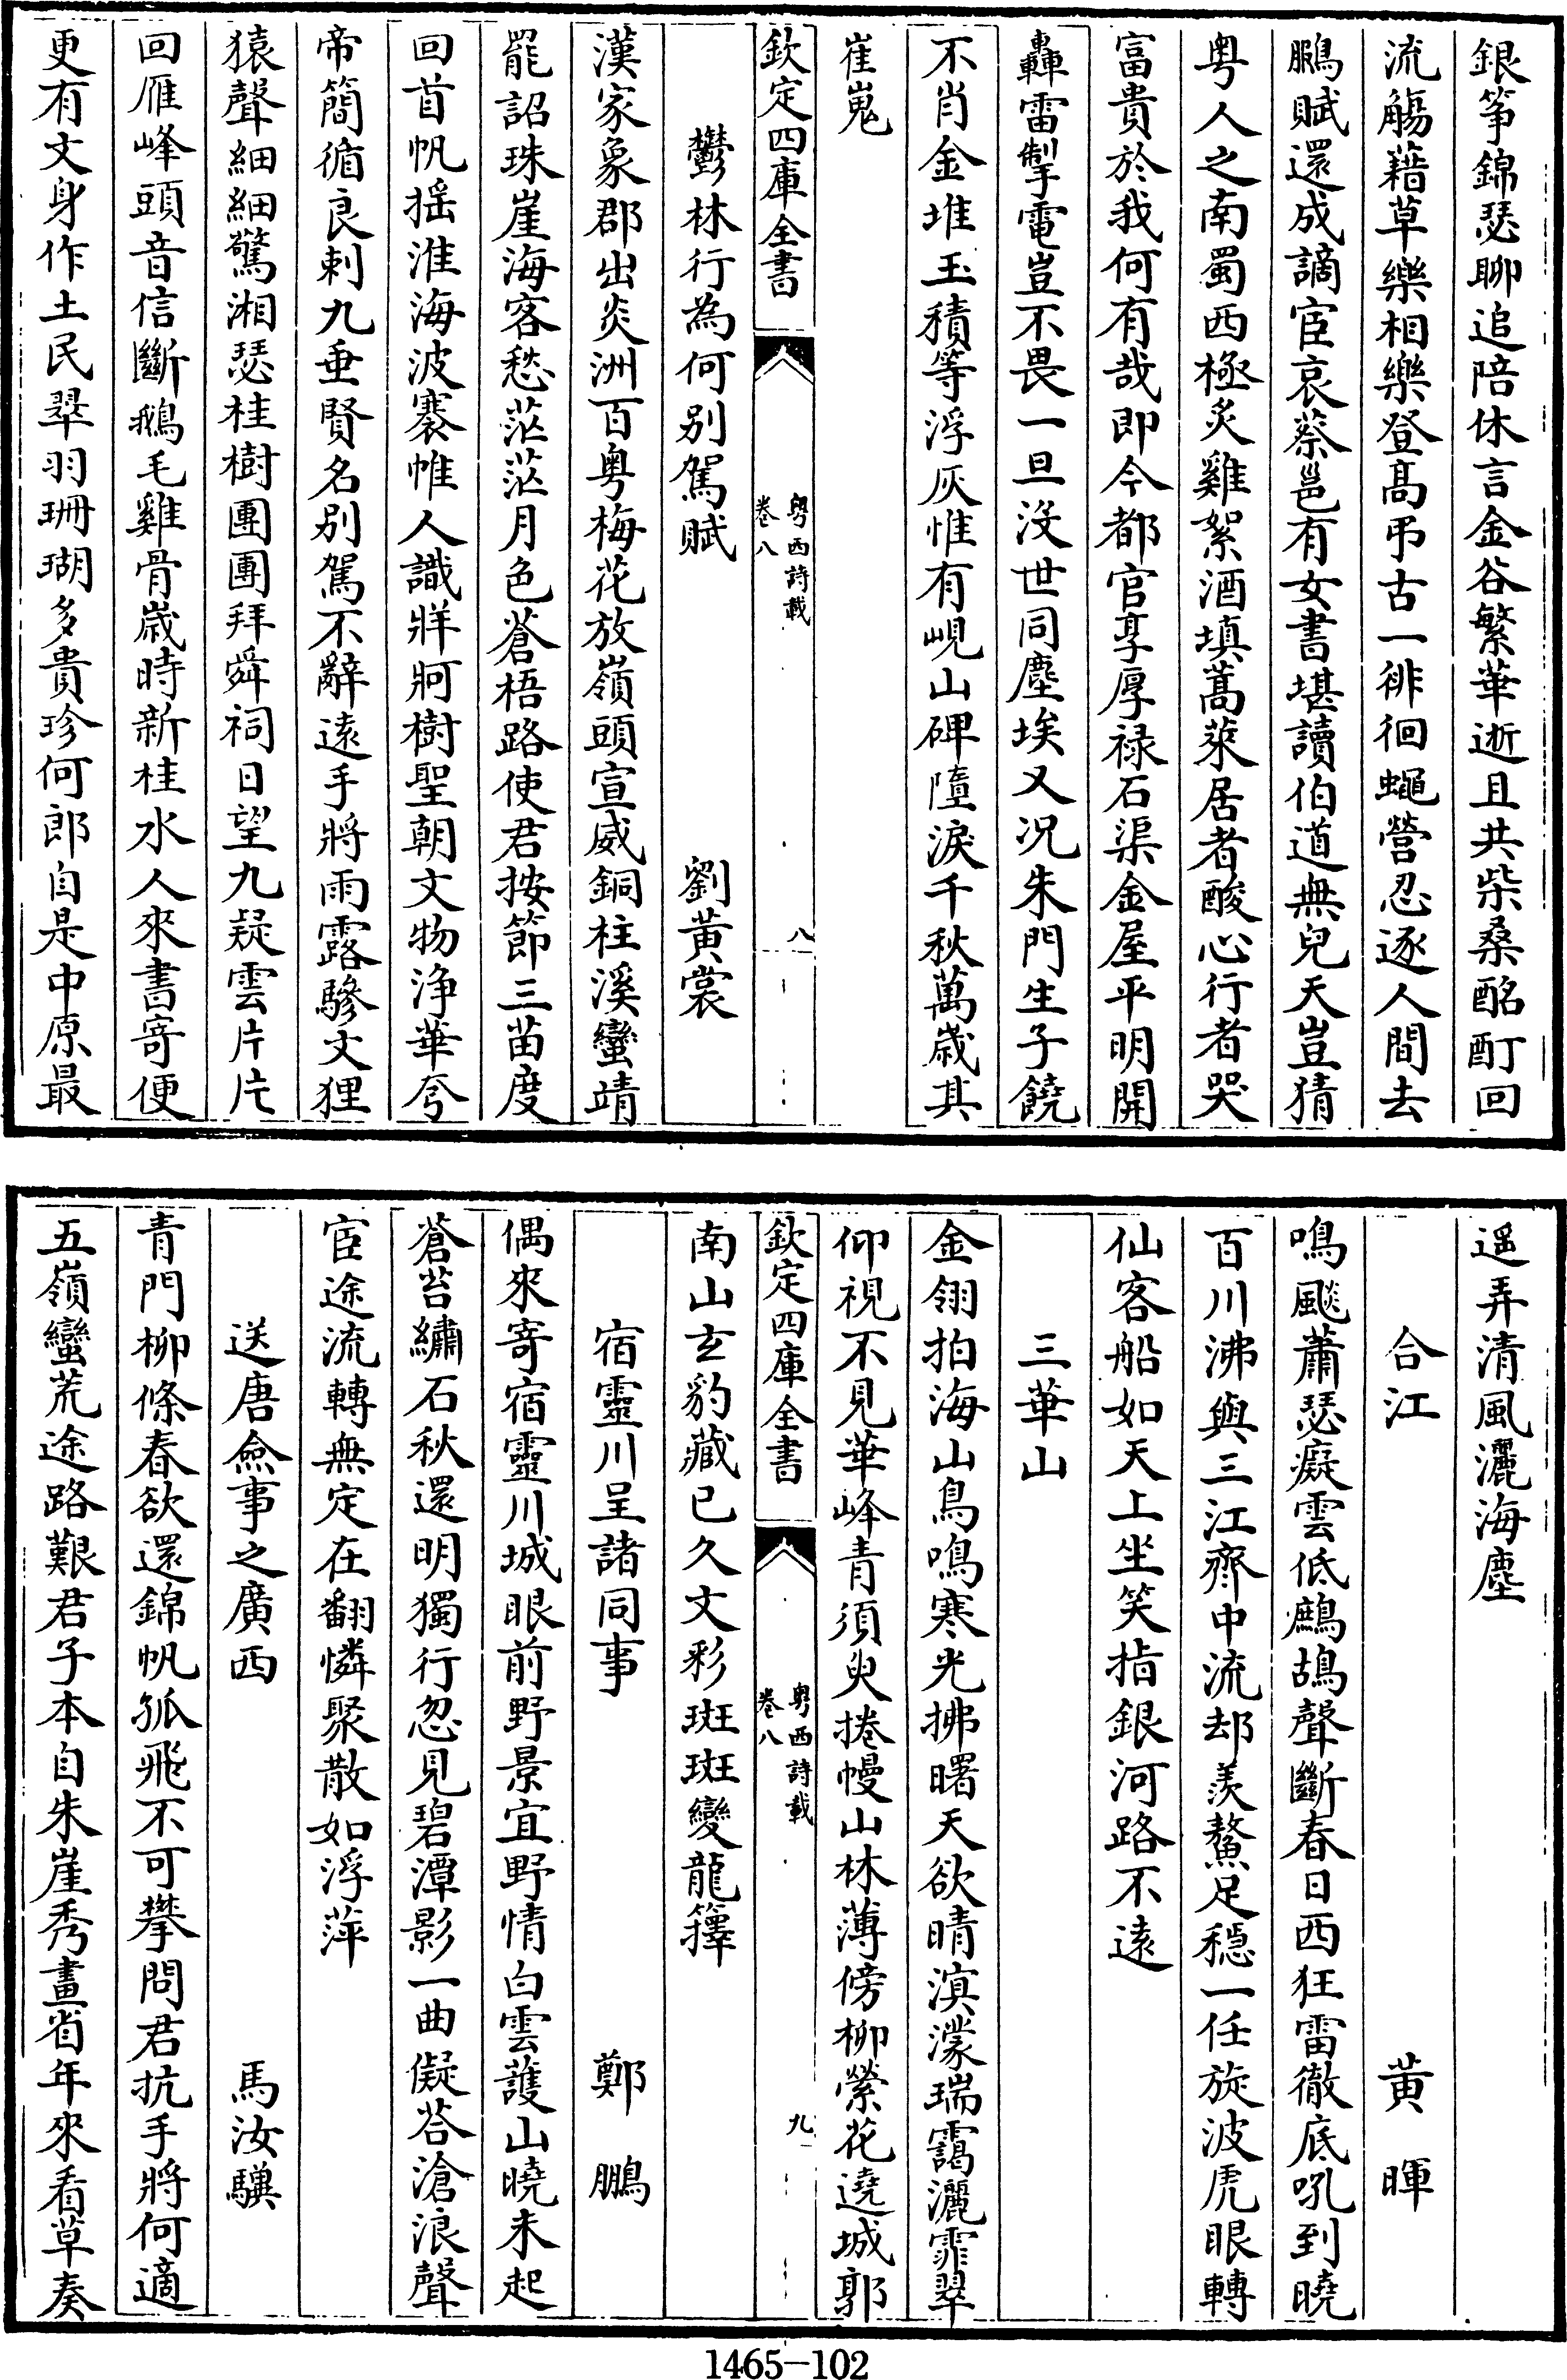 銀筝錦瑟聊追陪休言金谷繁華逝且共柴桑酩酊回
流觴藉草樂相樂登高弔古一徘徊蠅營忍逐人間去
鵩賦還成謫宦哀蔡邕有女書堪讀伯道無兒天豈猜
粤人之南蜀西極炙雞絮酒填蒿萊居者酸心行者哭
富貴於我何有哉即今都官享厚禄石渠金屋平明開
轟雷掣電豈不畏一旦沒世同塵埃又况朱門生子饒
不肖金堆玉積等浮灰惟有峴山碑墮淚千秋萬歲其
崔嵬
欽定四庫全書
粤西詩載
卷八
八
鬱林行為何别駕賦
劉黄裳
漢家象郡出炎洲百粤梅花放嶺頭宣威銅柱溪蠻靖
罷詔珠崖海客愁茫茫月色蒼梧路使君按節三苗度
回首帆揺淮海波褰帷人識牂牁樹聖朝文物浄華夸
帝簡循良剌九垂賢名别駕不辭遠手將雨露驂文狸
猿聲細細驚湘瑟桂樹團團拜舜祠日望九疑雲片片
回雁峰頭音信斷鵝毛雞骨歲時新桂水人來書寄便
更有文身作土民翠羽珊瑚多貴珍何郎自是中原最
遥弄清風灑海塵
合江
黄暉
鳴颷蕭瑟癡雲低鷓鴣聲斷春日西狂雷徹底吼到曉
百川沸與三江齊中流却羨鰲足穩一任旋波虎眼轉
仙客船如天上坐笑指銀河路不遠
三華山
金翎拍海山鳥鳴寒光拂曙天欲晴溟濛瑞靄灑霏翠
仰視不見華峰青須臾捲幔山林薄傍柳縈花遶城郭
欽定四庫全書
粤西詩載
卷八
九
南山玄豹藏已久文彩斑斑變龍籜
宿靈川呈諸同事
鄭鵬
偶來寄宿靈川城眼前野景宜野情白雲護山曉未起
蒼苔繡石秋還明獨行忽見碧潭影一曲儗荅滄浪聲
宦途流轉無定在翻憐聚散如浮萍
送唐僉事之廣西
馬汝驥
青門柳條春欲還錦帆孤飛不可攀問君抗手將何適
五嶺蠻荒途路艱君子本自朱崖秀畫省年來看草奏
1465-102